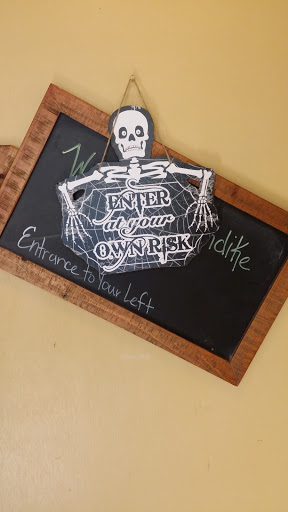 ENTER
at your
OWN RISK
Entrance to Your Left